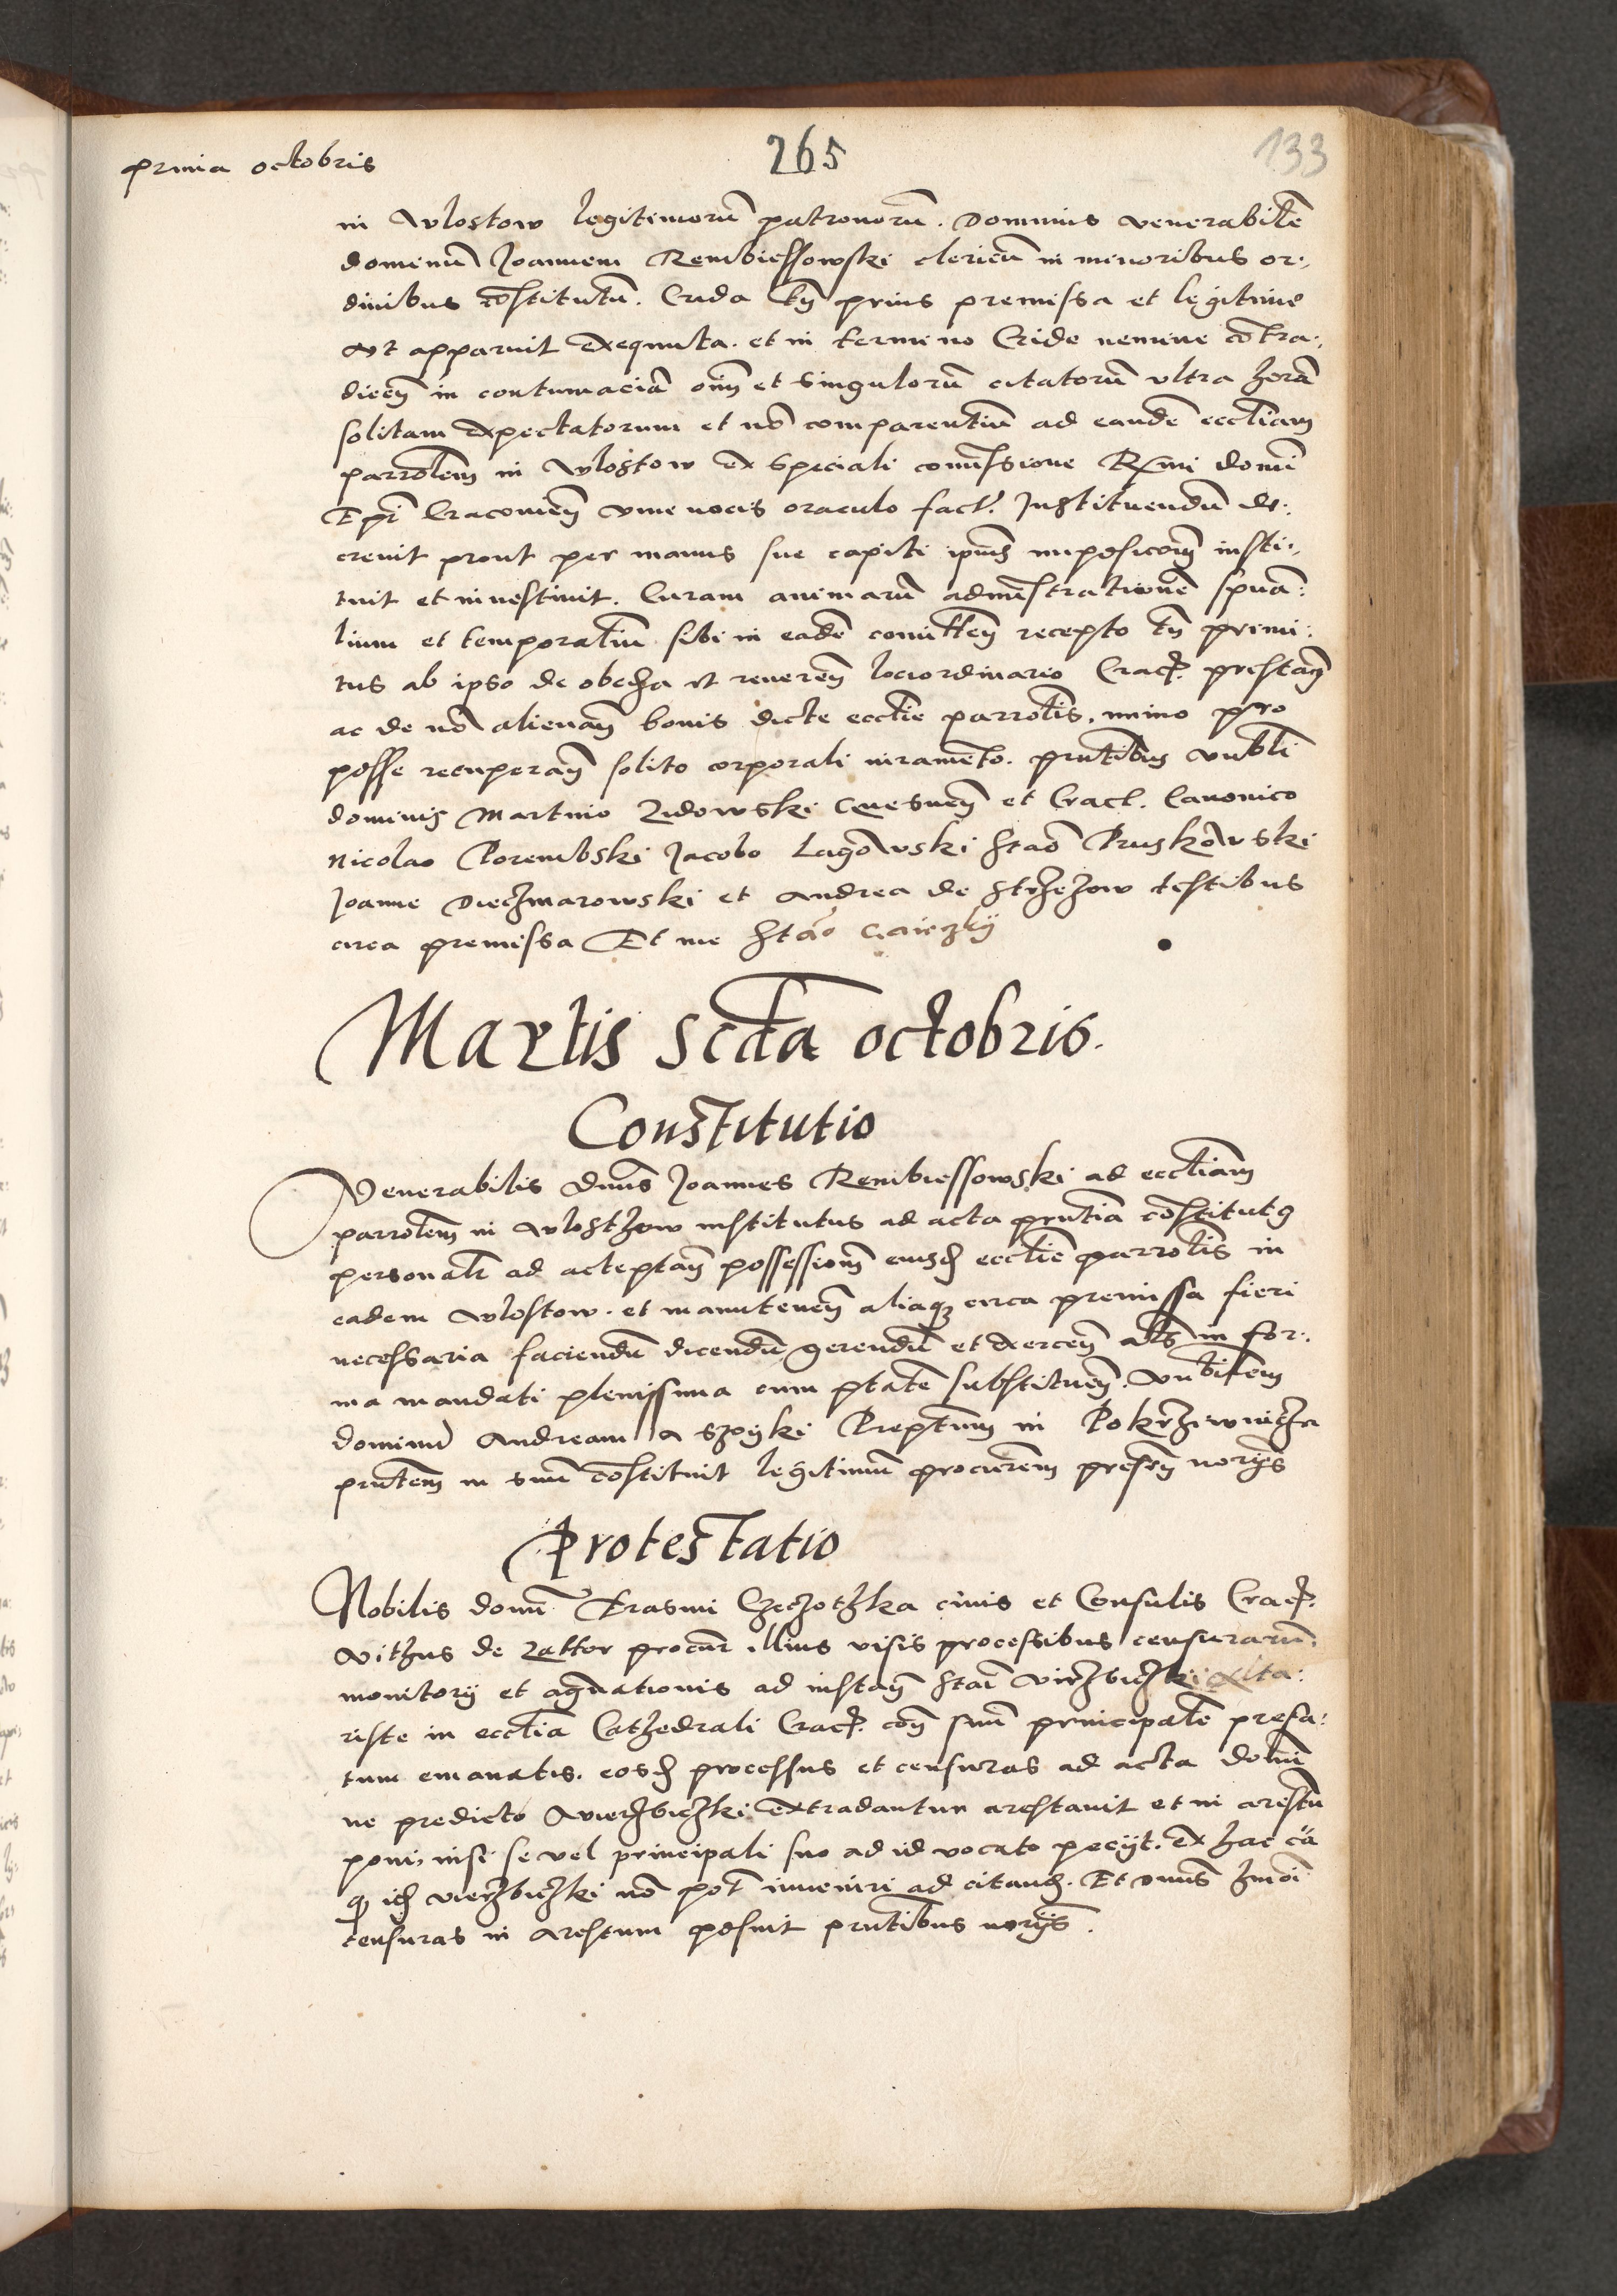 prima octobris
265
133
in Wlostow legitimorũ patronorũ. Dominus venerabilẽ
dominũ Joannem Rembiessowski clericũ in minoribus or:
dinibus cõstitutũ. Crida tñ prius premissa et legitime
ut apparuit exequuta. et in termino Cride nemine cõtra:
diceñ in contumaciã oĩm et singulorũ citatorũ ultra horã
solitam expectatorum et nõ comparentiũ ad eandẽ eccliam
parrolem in Wlostow ex speciali comissione Rmi domi
Epi Cracovieñ vive vocis oraculo fact. Instituendũ de:
crevit prout per manus sue capiti ipius imposicoem insti:
tuit et investivit. Curam animarũ administrationẽ spua:
lium et temporaliũ sibi in eadẽ comitteñ recepto tñ primi:
tus ab ipso de obedia et revereñ loci ordinario Crac. prestañ
ac de nõ alienañ bonis dicte ecclie parrolis, immo pro
posse recuperañ solito corporali iuramẽto. prntibus vnbli
dominis Martino Zidowski Gnesneñ et Crac. Canonico
Nicolao Porembski Jacobo Lagowski Stao Pruskowski
Joanne Diechmarowski et Andrea de Strzezow testibus
circa premissa Et me Stao
Martis scda octobris.
Constitutio
Venerabilis dnus Joannes Rembiessowski ad eccliam
parrolem in Wlostzow institutus ad acta prntia cõstitutus
personalr ad acceptañ possessionẽ eiusd ecclie parrolis in
eadem Wlostow. et manuteneñ aliaque circa premissa fieri
necessaria faciendũ dicendũ gerendũ et exerceñ als in for:
ma mandati plenissima cum ptate substitueñ. Vnbilem
dominũ Andream a Szyki Preptum in Pokrziwnicza
prntem in suũ cõstituit legitimũ procurem preseñ norijs
Protestatio
Nobilis domi Erasmi Czeczotzka civis et Consulis Crac.
Vitzus de Zattor procur illius visis processibus censurarũ,
monitorij et agravationis ad instañ Stai Virzbiczki Alta:
riste in ecclia Cathedrali Crac. con suũ principalẽ prefa:
tum emanatis. eosd processus et censuras ad acta domi
ne predicto Wierzbiczki extradantur arestavit et in arestũ
poni, nisi se vel principali suo ad id vocato peciit. ex hac cã
q id Vierzbiczki nõ pot inveniri ad citand. Et dnus hmoi
censuras in arestum posuit prntibus norijs.